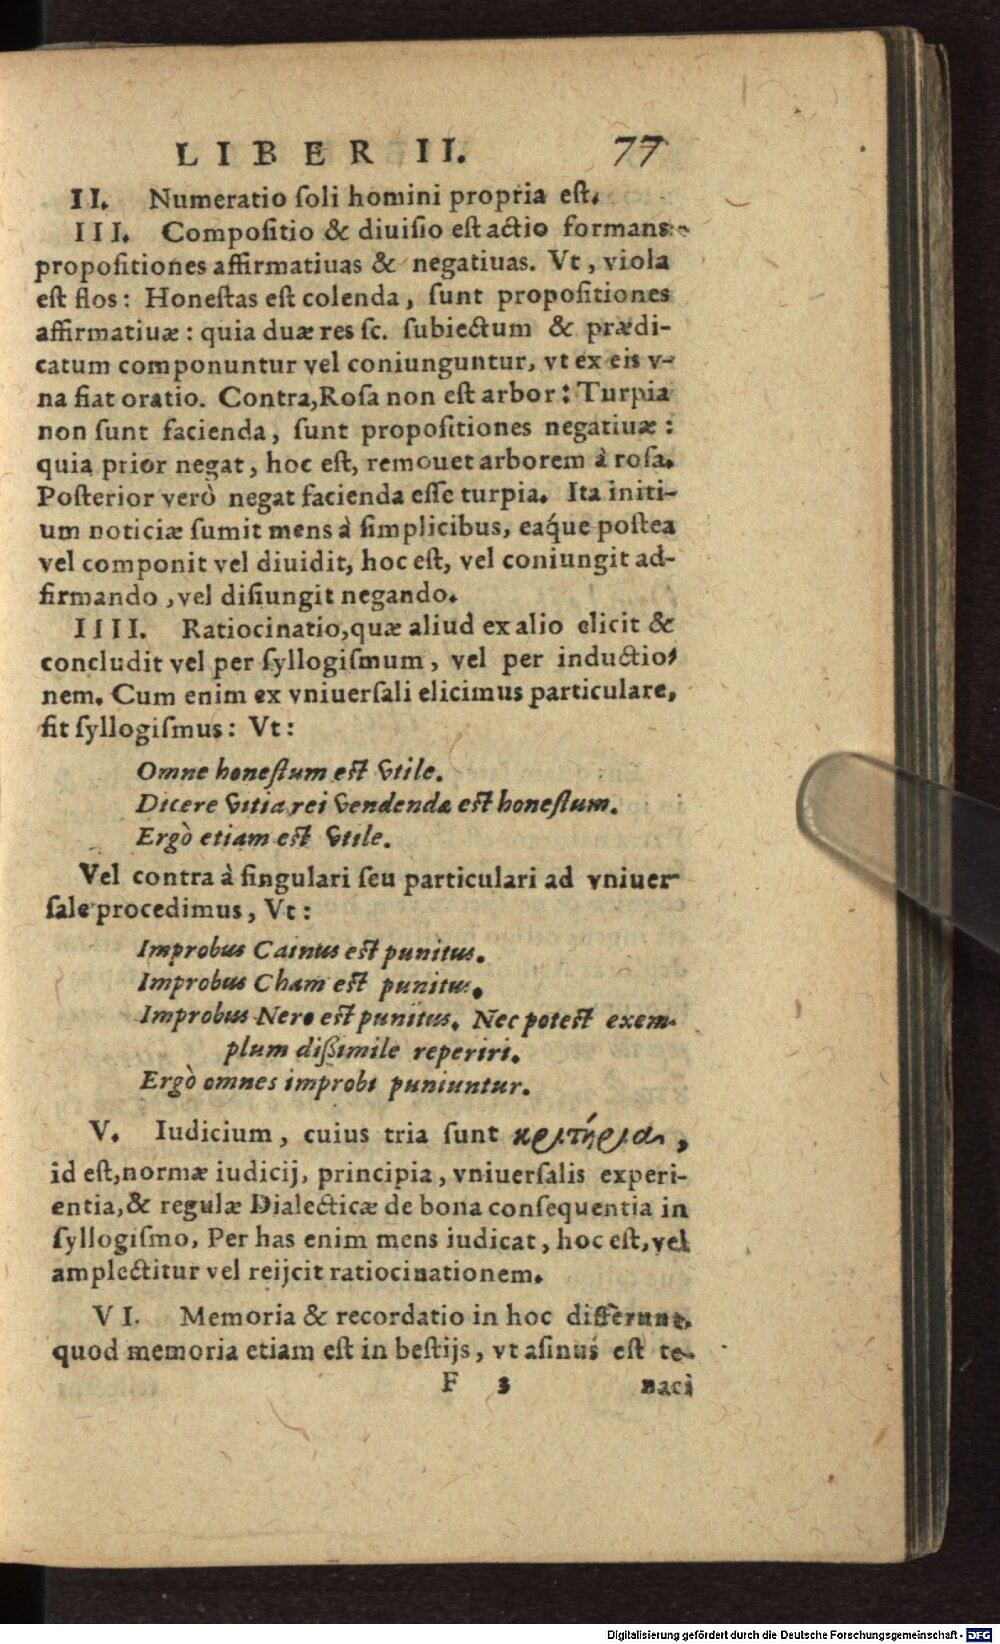 LIBER II. 77
II. Numeratio ſoli homini propria eſt.
III. Compoſitio & diuiſio eſt actio formans
propoſitiones affirmatiuas & negatiuas. Vt, viola
eſt flos: Honeſtas eſt colenda, ſunt propoſitiones
affirmatiuæ: quia duæ res ſc. ſubiectum & prædi-
catum componuntur vel coniunguntur, vt ex eis v-
na fiat oratio. Contra, Roſa non eſt arbor: Turpia
non ſunt facienda, ſunt propoſitiones negatiuæ:
quia prior negat, hoc eſt, remouet arborem à roſa.
Poſterior verò negat facienda eſſe turpia. Ita initi-
um noticiæ ſumit mens à ſimplicibus, eaq́ue poſtea
vel componit vel diuidit, hoc eſt, vel coniungit ad-
firmando, vel diſiungit negando.
IIII. Ratiocinatio, quæ aliud ex alio elicit &
concludit vel per ſyllogiſmum, vel per inductio-
nem. Cum enim ex vniuerſali elicimus particulare,
fit ſyllogiſmus: Vt:
Omne honeſtum eſt vtile.
Dicere vitia rei vendendæ eſt honeſtum.
Ergò etiam eſt vtile.
Vel contra à ſingulari ſeu particulari ad vniuer
ſale procedimus, Vt:
Improbus Cainus eſt punitus.
Improbus Cham eſt punitus.
Improbus Nero eſt punitus. Nec poteſt exem-
plum dißimile reperiri.
Ergò omnes improbi puniuntur.
V. Iudicium, cuius tria ſunt κριτήρια,
id eſt, normæ iudicij, principia, vniuerſalis experi-
entia, & regulæ Dialecticæ de bona conſequentia in
ſyllogiſmo. Per has enim mens iudicat, hoc eſt, vel
amplectitur vel reijcit ratiocinationem.
VI. Memoria & recordatio in hoc differunt,
quod memoria etiam eſt in beſtijs, vt aſinus eſt te-
F 3 naci
Digitalisierung gefördert durch die Deutsche Forschungsgemeinschaft - DFG